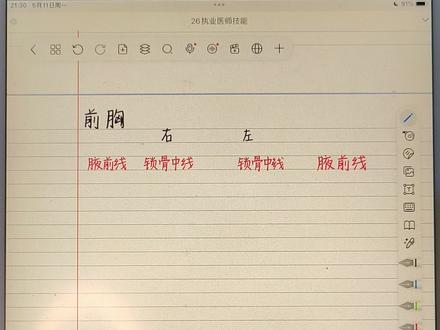 21:30 5月11日周一
91%
26执业医师技能
前胸
右 左
腋前线 锁骨中线 锁骨中线 腋前线